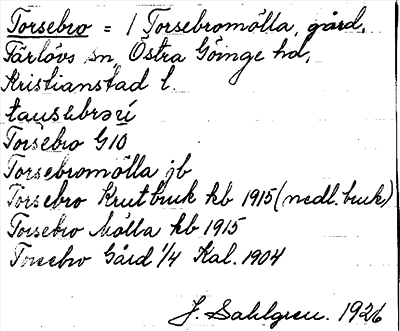 Torsebro = / Torsebromölla, gård,
Färlövs sn, Östra Göinge hd,
Kristianstad l.
Torsebro G10
Torsebromölla jb
Torsebro Krutbruk kb 1915 (nedl. bruk)
Torsebro Mölla kb 1915
Torsebro Gård 1/4 Kal. 1904
J. Sahlgren. 1926